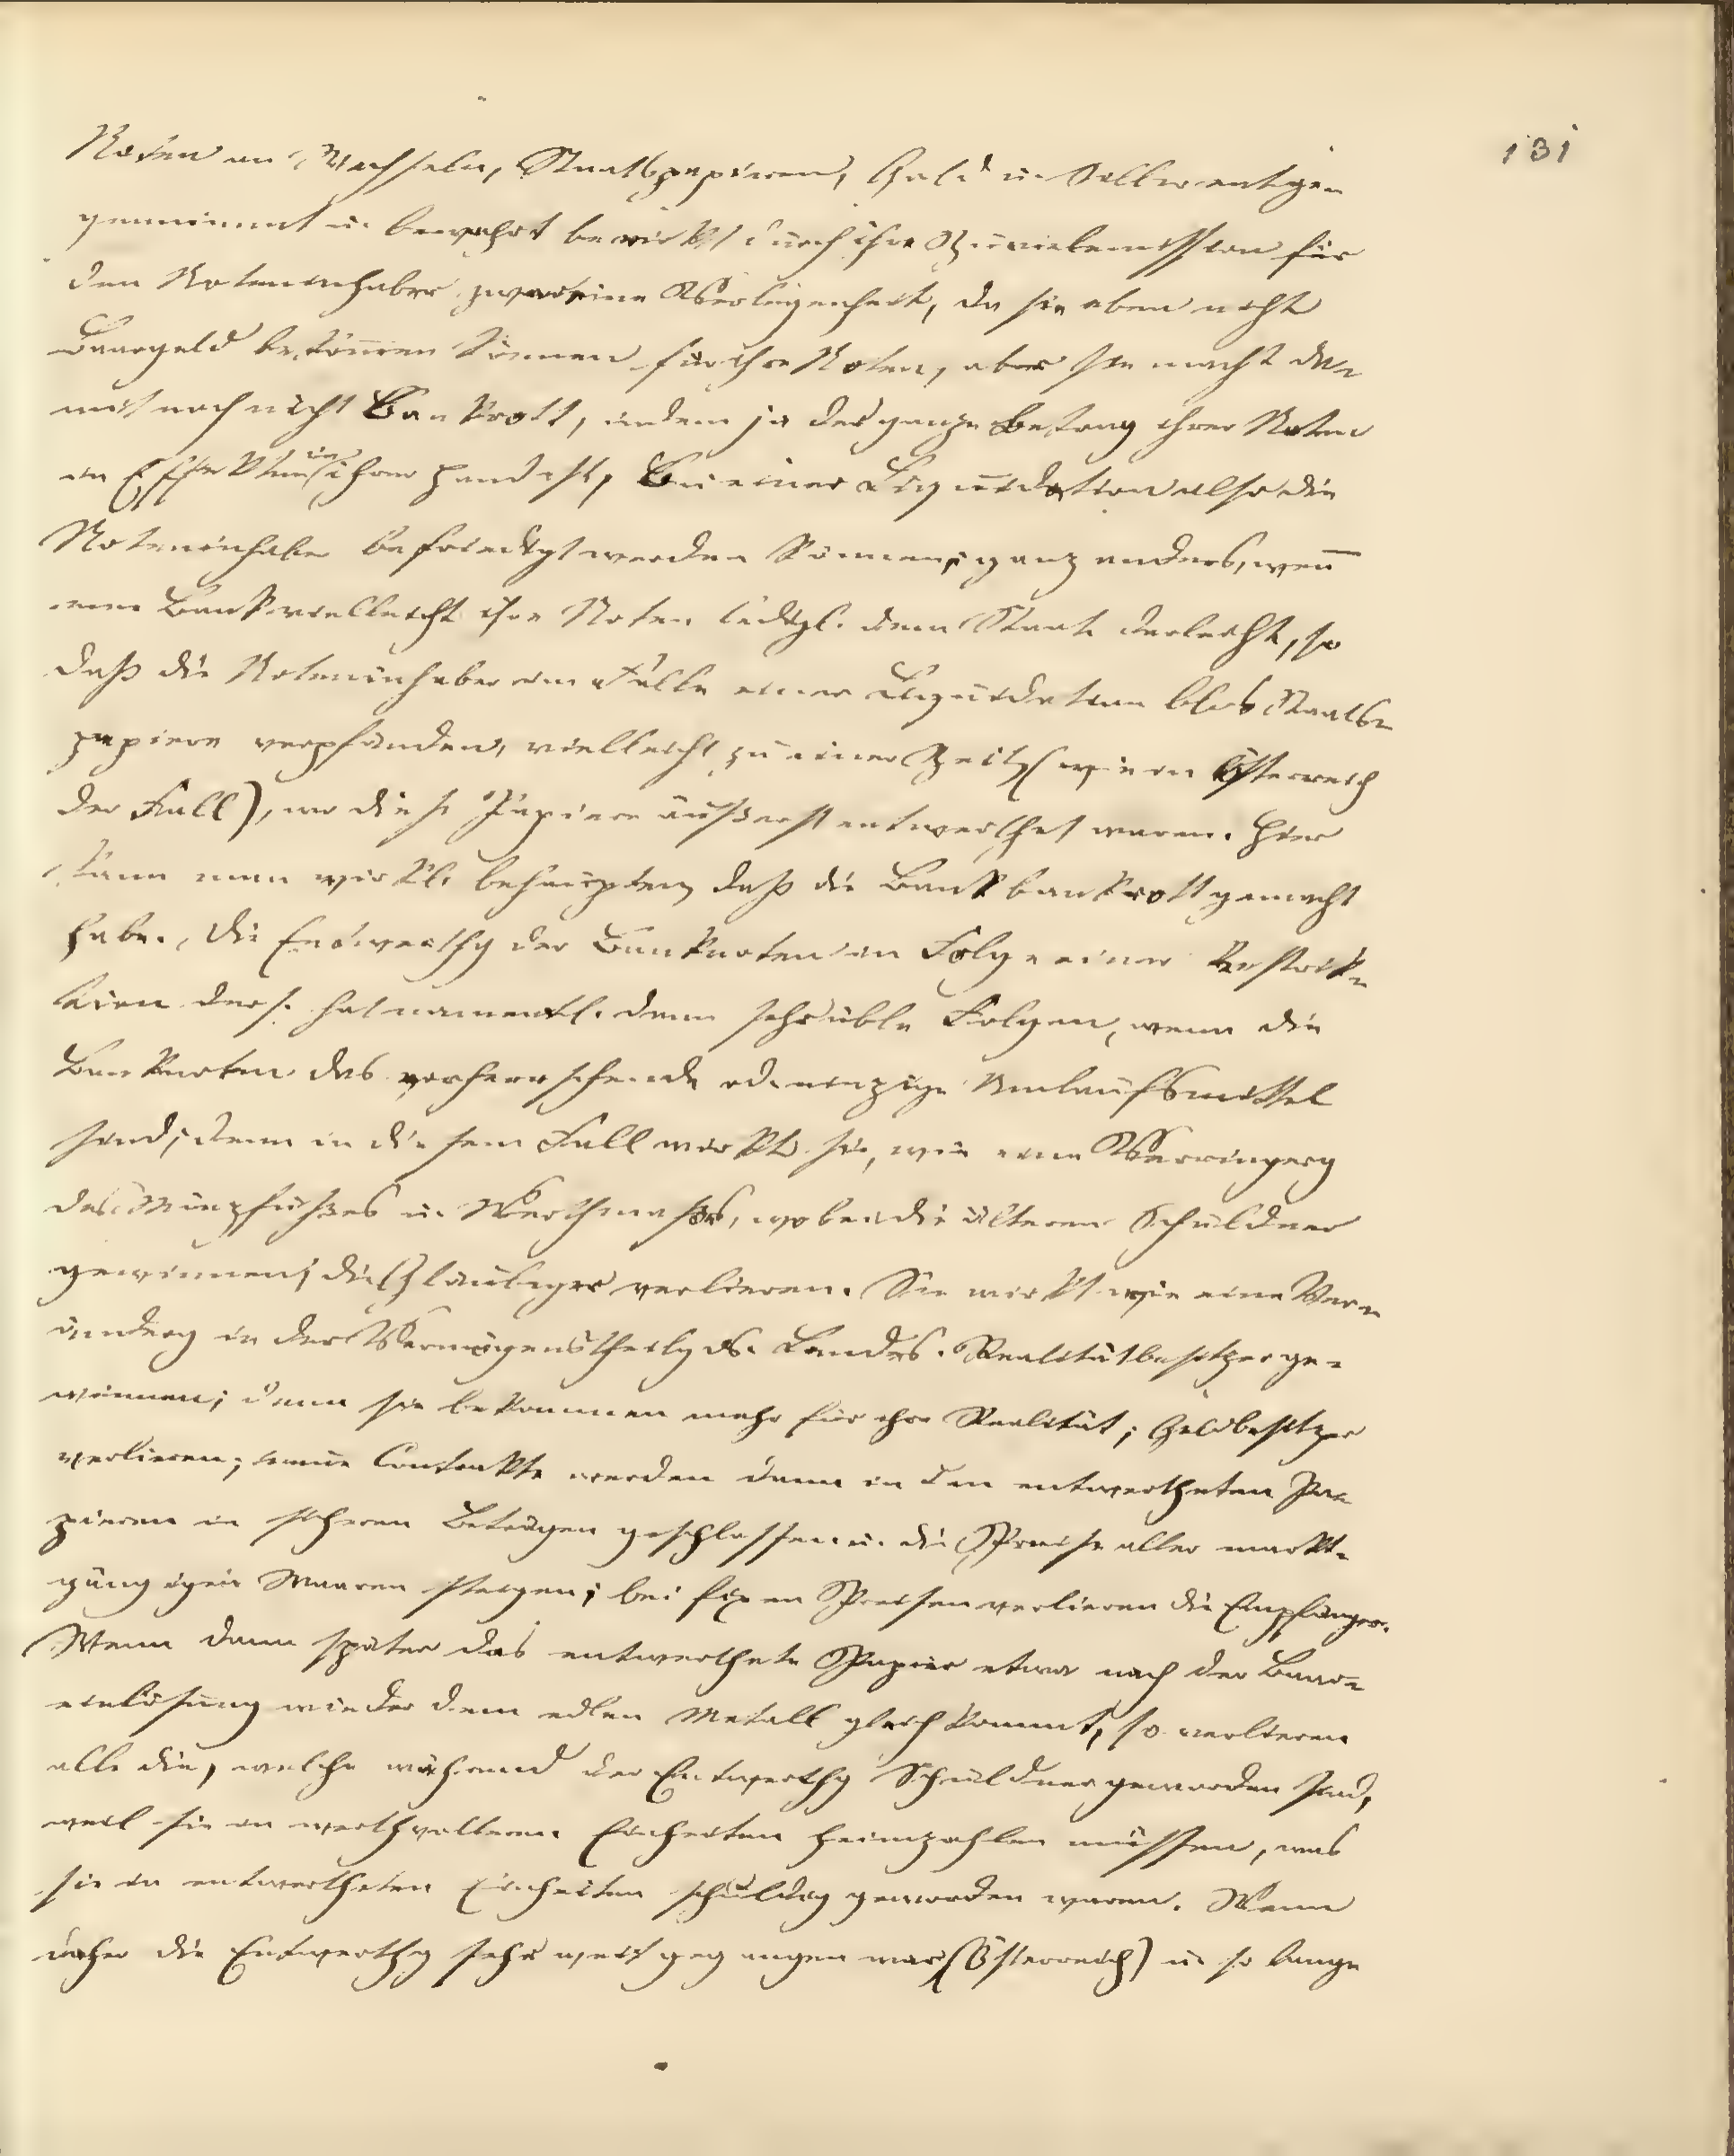 131
Noten an Wechseln, Staatspapieren, Gold u. Silber entge-
gennimmt u. bewahrt bewirkt durch ihre Zuvielemission für
den Noteninhaber zwar eine Verlegenheit, da sie eben nicht
Baargeld bekommen können für ihre Noten, aber sie macht da-
mit noch nicht Bankrott, indem ja der ganze Betrag ihrer Noten
an Effekten in ihrer Hand ist, bei einer Liquidation also die
Noteninhaber befriedigt werden können; ganz anders, wenn
eine Bank vielleicht ihre Noten ledigl. dem Staate verleiht, so
daß die Noteninhaber im Falle einer Liquidation blos Staats-
papiere vorfänden, vielleicht zu einer Zeit, (wie in Österreich
der Fall), wo diese Papiere äußerst entwerthet waren. Hier
kann man wirkl. behaupten, daß die Bank bankrott gemacht
habe. Die Entwerthg der Banknoten in Folge einer Restrik-
tion ders. hat namentl. dann sehr üble Folgen, wenn die
Banknoten das vorherrschende od. einzige Umlaufsmittel
sind; denn in diesem Fall wirkt sie, wie eine Verringerg
des Münzfußes u. Werthmaßes, wobei die älteren Schuldner
gewinnen, die Gläubiger verlieren. Sie wirkt wie eine Ver-
änderg in der Vermögenstheilg ds. Landes. Realitätbesitzer ge-
winnen; denn sie bekommen mehr für ihre Realität; Geldbesitzer
verlieren; neue Contrakte werden dann in den entwertheten Pa-
pieren in höheren Beträgen geschlossen u. die Preise aller markt-
gängigen Waaren steigen; bei fixen Preisen verlieren die Empfänger.
Wenn dann später das entwerthete Papier etwa nach der Baar-
einlösung wieder dem edlen Metall gleich kommt, so verlieren
alle die, welche während der Entwerthg Schuldner geworden sind,
weil sie in werthvolleren Einheiten heimzahlen müssen, was
sie in entwertheten Einheiten schuldig geworden waren. Wenn
daher die Entwerthg sehr weit gegangen war (Österreich) u. so lange